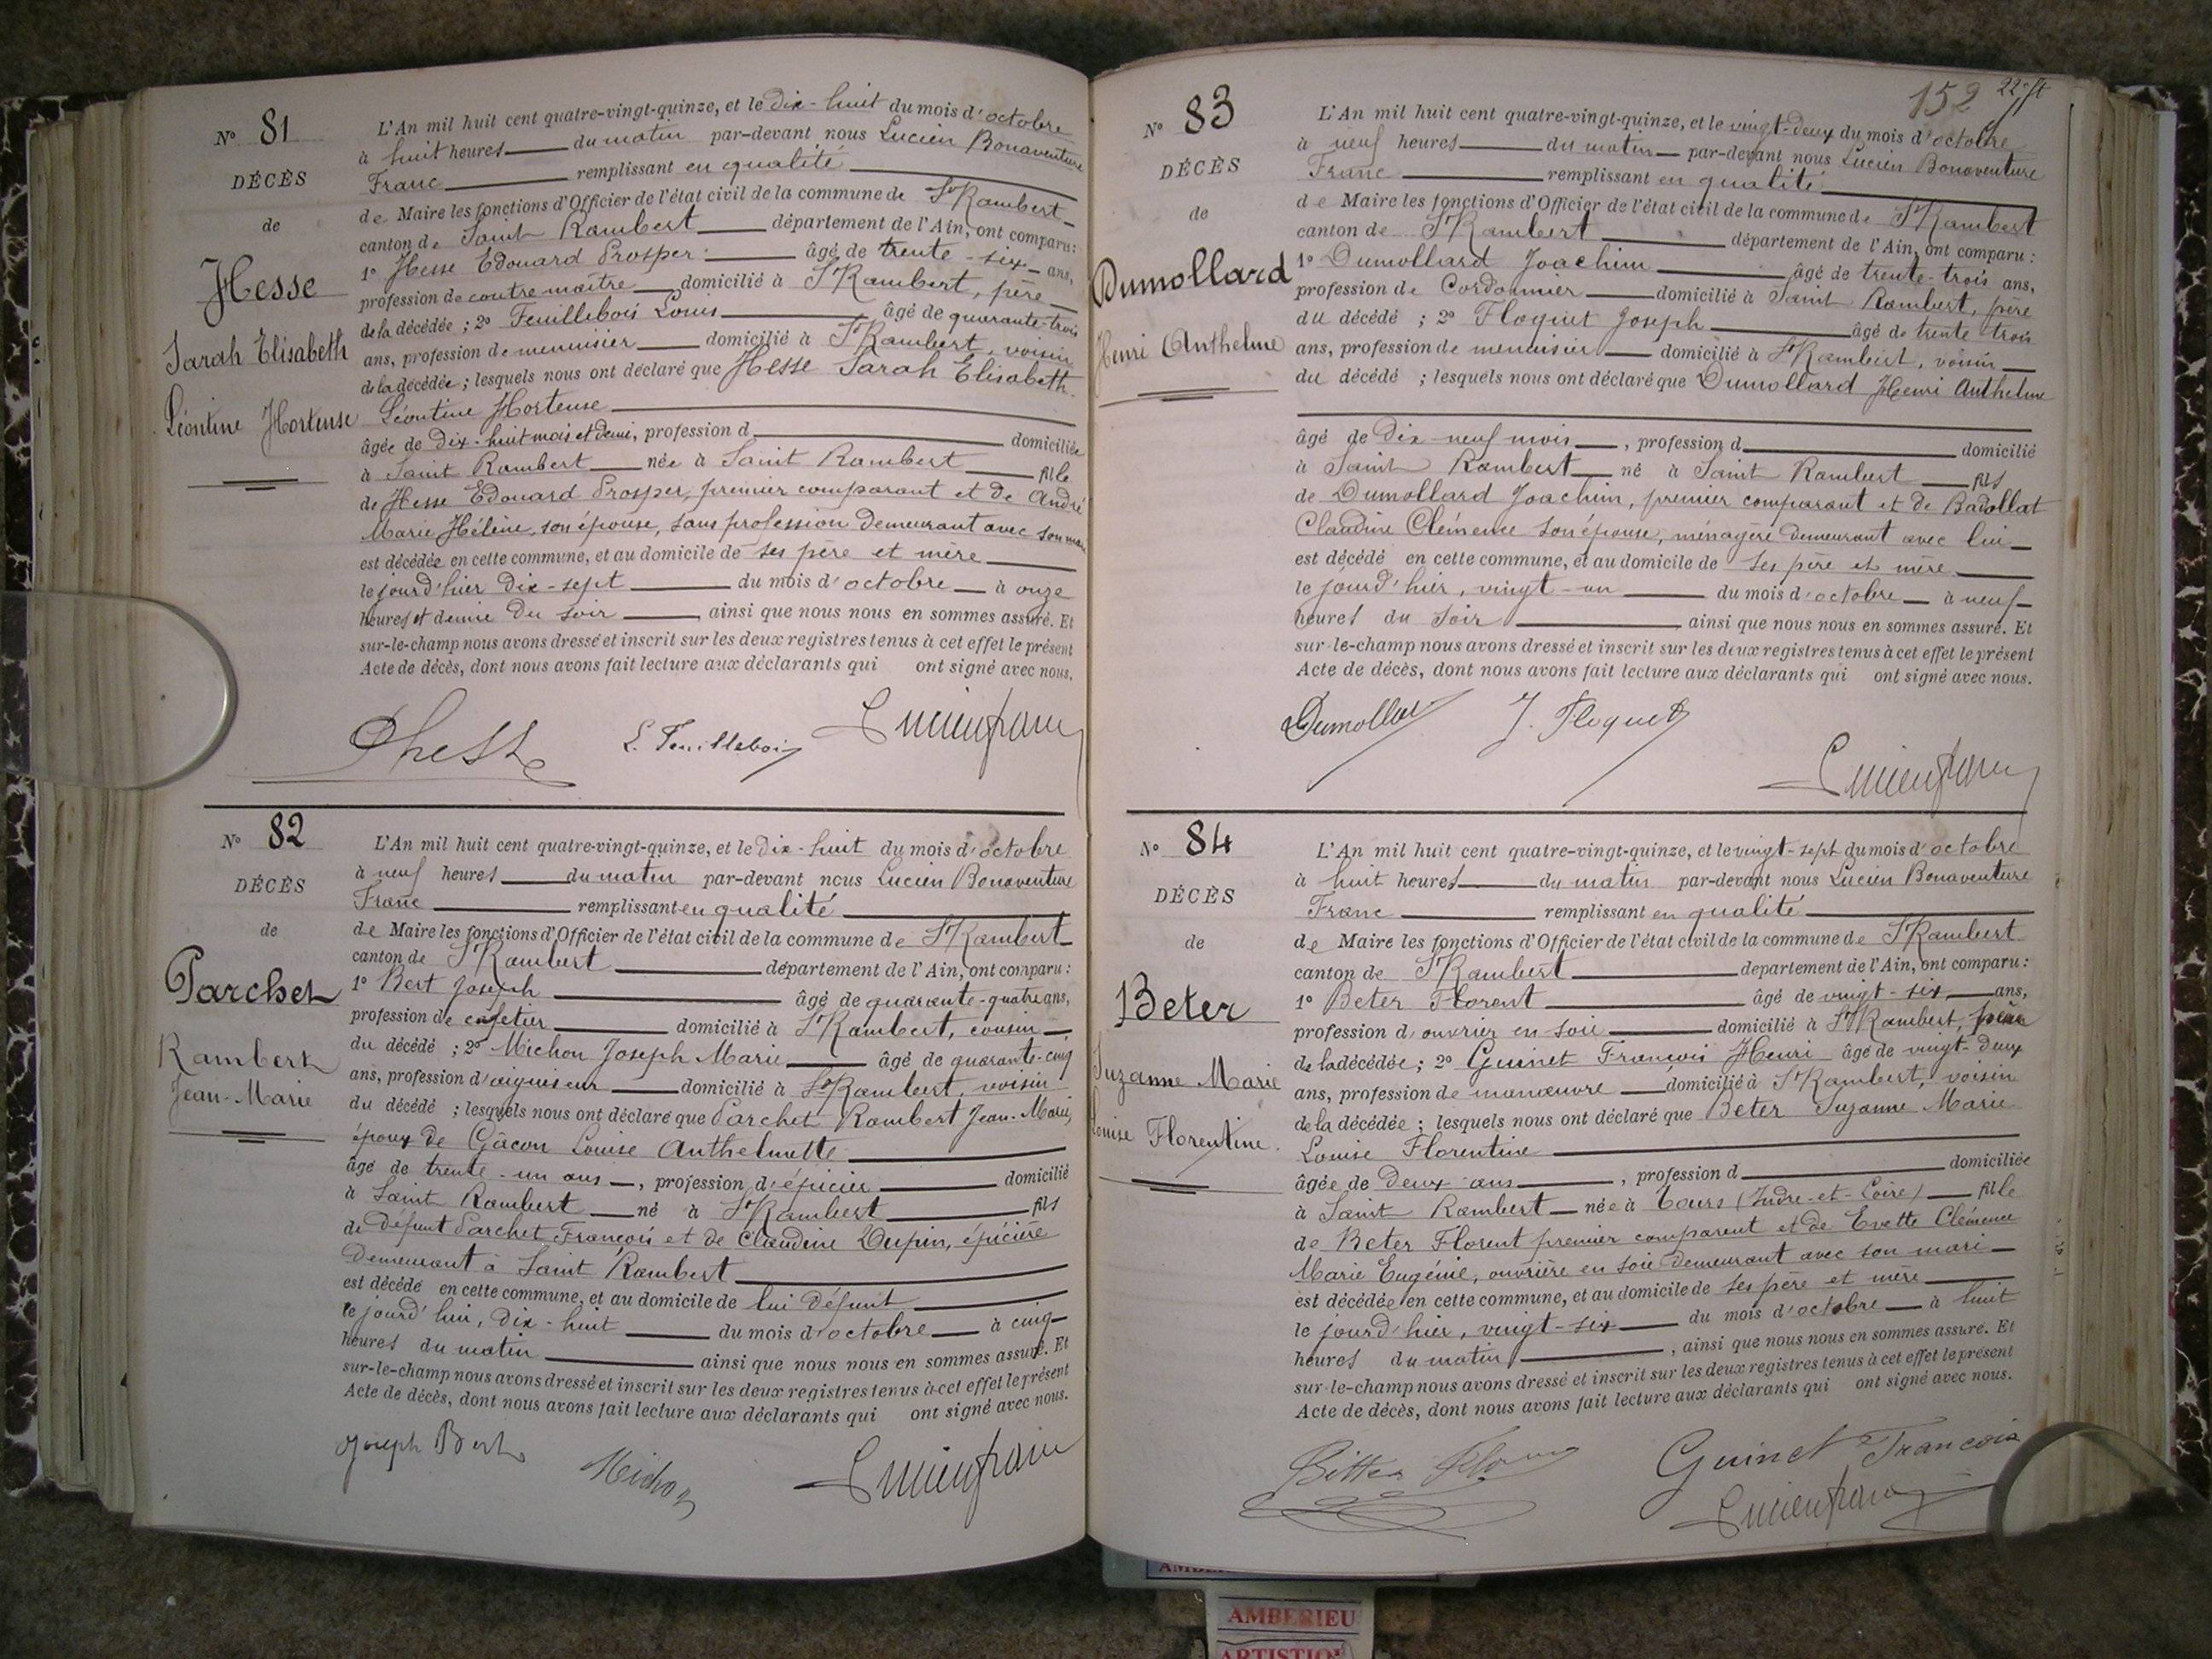 N° 81
DÉCÈS
de
Hesse
Sarah Elisabeth
Léontine Hortense
L'An mil huit cent quatre-vingt-quinze, et le dix-huit du mois d'octobre
à huit heures du matin par-devant nous Lucien Bonaventure
Franc remplissant en qualité
de Maire les fonctions d'Officier de l'état civil de la commune de St Rambert
canton de Saint Rambert département de l'Ain, ont comparu:
1° Hesse Edouard Prosper âgé de trente-six ans,
profession de contre maître domicilié à St Rambert, père
de la décédée; 2° Feuillebois Louis âgé de quarante-trois
ans, profession de menuisier domicilié à St Rambert, voisin
de la décédée; lesquels nous ont déclaré que Hesse Sarah Elisabeth
Léontine Hortense
âgée de dix-huit mois et demi, profession d domiciliée
à Saint Rambert née à Saint Rambert fille
de Hesse Edouard Prosper, premier comparant et de André
Marie Hélène, son épouse, sans profession demeurant avec son mari
est décédée en cette commune, et au domicile de ses père et mère
le jourd'hier dix-sept du mois d'octobre à onze
heures et demie du soir ainsi que nous nous en sommes assuré. Et
sur-le-champ nous avons dressé et inscrit sur les deux registres tenus à cet effet le présent
Acte de décès, dont nous avons fait lecture aux déclarants qui ont signé avec nous.
L. Feuillebois Lucien franc
N° 82
DÉCÈS
de
Parchet
Rambert
Jean-Marie
L'An mil huit cent quatre-vingt-quinze, et le dix-huit du mois d'octobre
à neuf heures du matin par-devant nous Lucien Bonaventure
Franc remplissant en qualité
de Maire les fonctions d'Officier de l'état civil de la commune de St Rambert
canton de St Rambert département de l'Ain, ont comparu:
1° Bert Joseph âgé de quarante-quatre ans,
profession de cafetier domicilié à St Rambert, cousin
du décédé; 2° Michon Joseph Marie âgé de quarante-cinq
ans, profession d'aiguiseur domicilié à St Rambert, voisin
du décédé; lesquels nous ont déclaré que Parchet Rambert Jean-Marie,
époux de Gâcon Louise Anthelmette
âgé de trente-un ans, profession d'épicier domicilié
à Saint Rambert né à St Rambert fils
de défunt Parchet François et de Claudine Dupin, épicière
demeurant à Saint Rambert
est décédé en cette commune, et au domicile de lui défunt
le jourd'hui, dix-huit du mois d'octobre à cinq
heures du matin ainsi que nous nous en sommes assuré. Et
sur-le-champ nous avons dressé et inscrit sur les deux registres tenus à cet effet le présent
Acte de décès, dont nous avons fait lecture aux déclarants qui ont signé avec nous.
Joseph Bert Michon Lucien franc
152
N° 83
DÉCÈS
de
Dumollard
Henri Anthelme
L'An mil huit cent quatre-vingt-quinze, et le vingt-deux du mois d'octobre
à neuf heures du matin par-devant nous Lucien Bonaventure
Franc remplissant en qualité
de Maire les fonctions d'Officier de l'état civil de la commune de St Rambert
canton de St Rambert département de l'Ain, ont comparu:
1° Dumollard Joachim âgé de trente-trois ans,
profession de Cordonnier domicilié à Saint Rambert, père
du décédé; 2° Floquet Joseph âgé de trente trois
ans, profession de menuisier domicilié à St Rambert, voisin
du décédé; lesquels nous ont déclaré que Dumollard Henri Anthelme
âgé de dix-neuf mois, profession d domicilié
à Saint Rambert né à Saint Rambert fils
de Dumollard Joachim, premier comparant et de Badollat
Claudine Clémence son épouse, ménagère demeurant avec lui
est décédé en cette commune, et au domicile de ses père et mère
le jourd'hier, vingt-un du mois d'octobre à neuf
heures du soir ainsi que nous nous en sommes assuré. Et
sur-le-champ nous avons dressé et inscrit sur les deux registres tenus à cet effet le présent
Acte de décès, dont nous avons fait lecture aux déclarants qui ont signé avec nous.
J. Floquet
Lucien franc
N° 84
DÉCÈS
de
Beter
Suzanne Marie
Louise Florentine.
L'An mil huit cent quatre-vingt-quinze, et le vingt-sept du mois d'octobre
à huit heures du matin par-devant nous Lucien Bonaventure
Franc remplissant en qualité
de Maire les fonctions d'Officier de l'état civil de la commune de St Rambert
canton de St Rambert département de l'Ain, ont comparu:
1° Beter Florent âgé de vingt-six ans,
profession d'ouvrier en soie domicilié à St Rambert, père
de la décédée; 2° Guinet François Henri âgé de vingt-deux
ans, profession de manœuvre domicilié à St Rambert, voisin
de la décédée; lesquels nous ont déclaré que Beter Suzanne Marie
Louise Florentine
âgée de deux ans, profession d domiciliée
à Saint Rambert née à Tours (Indre-et-Loire) fille
de Beter Florent premier comparent et de Evette Clémence
Marie Eugénie, ouvrière en soie demeurant avec son mari
est décédée en cette commune, et au domicile de ses père et mère
le jourd'hier, vingt-six du mois d'octobre à huit
heures du matin, ainsi que nous nous en sommes assuré. Et
sur-le-champ nous avons dressé et inscrit sur les deux registres tenus à cet effet le présent
Acte de décès, dont nous avons fait lecture aux déclarants qui ont signé avec nous.
Guinet Francois
Lucien franc
AMBERIEU